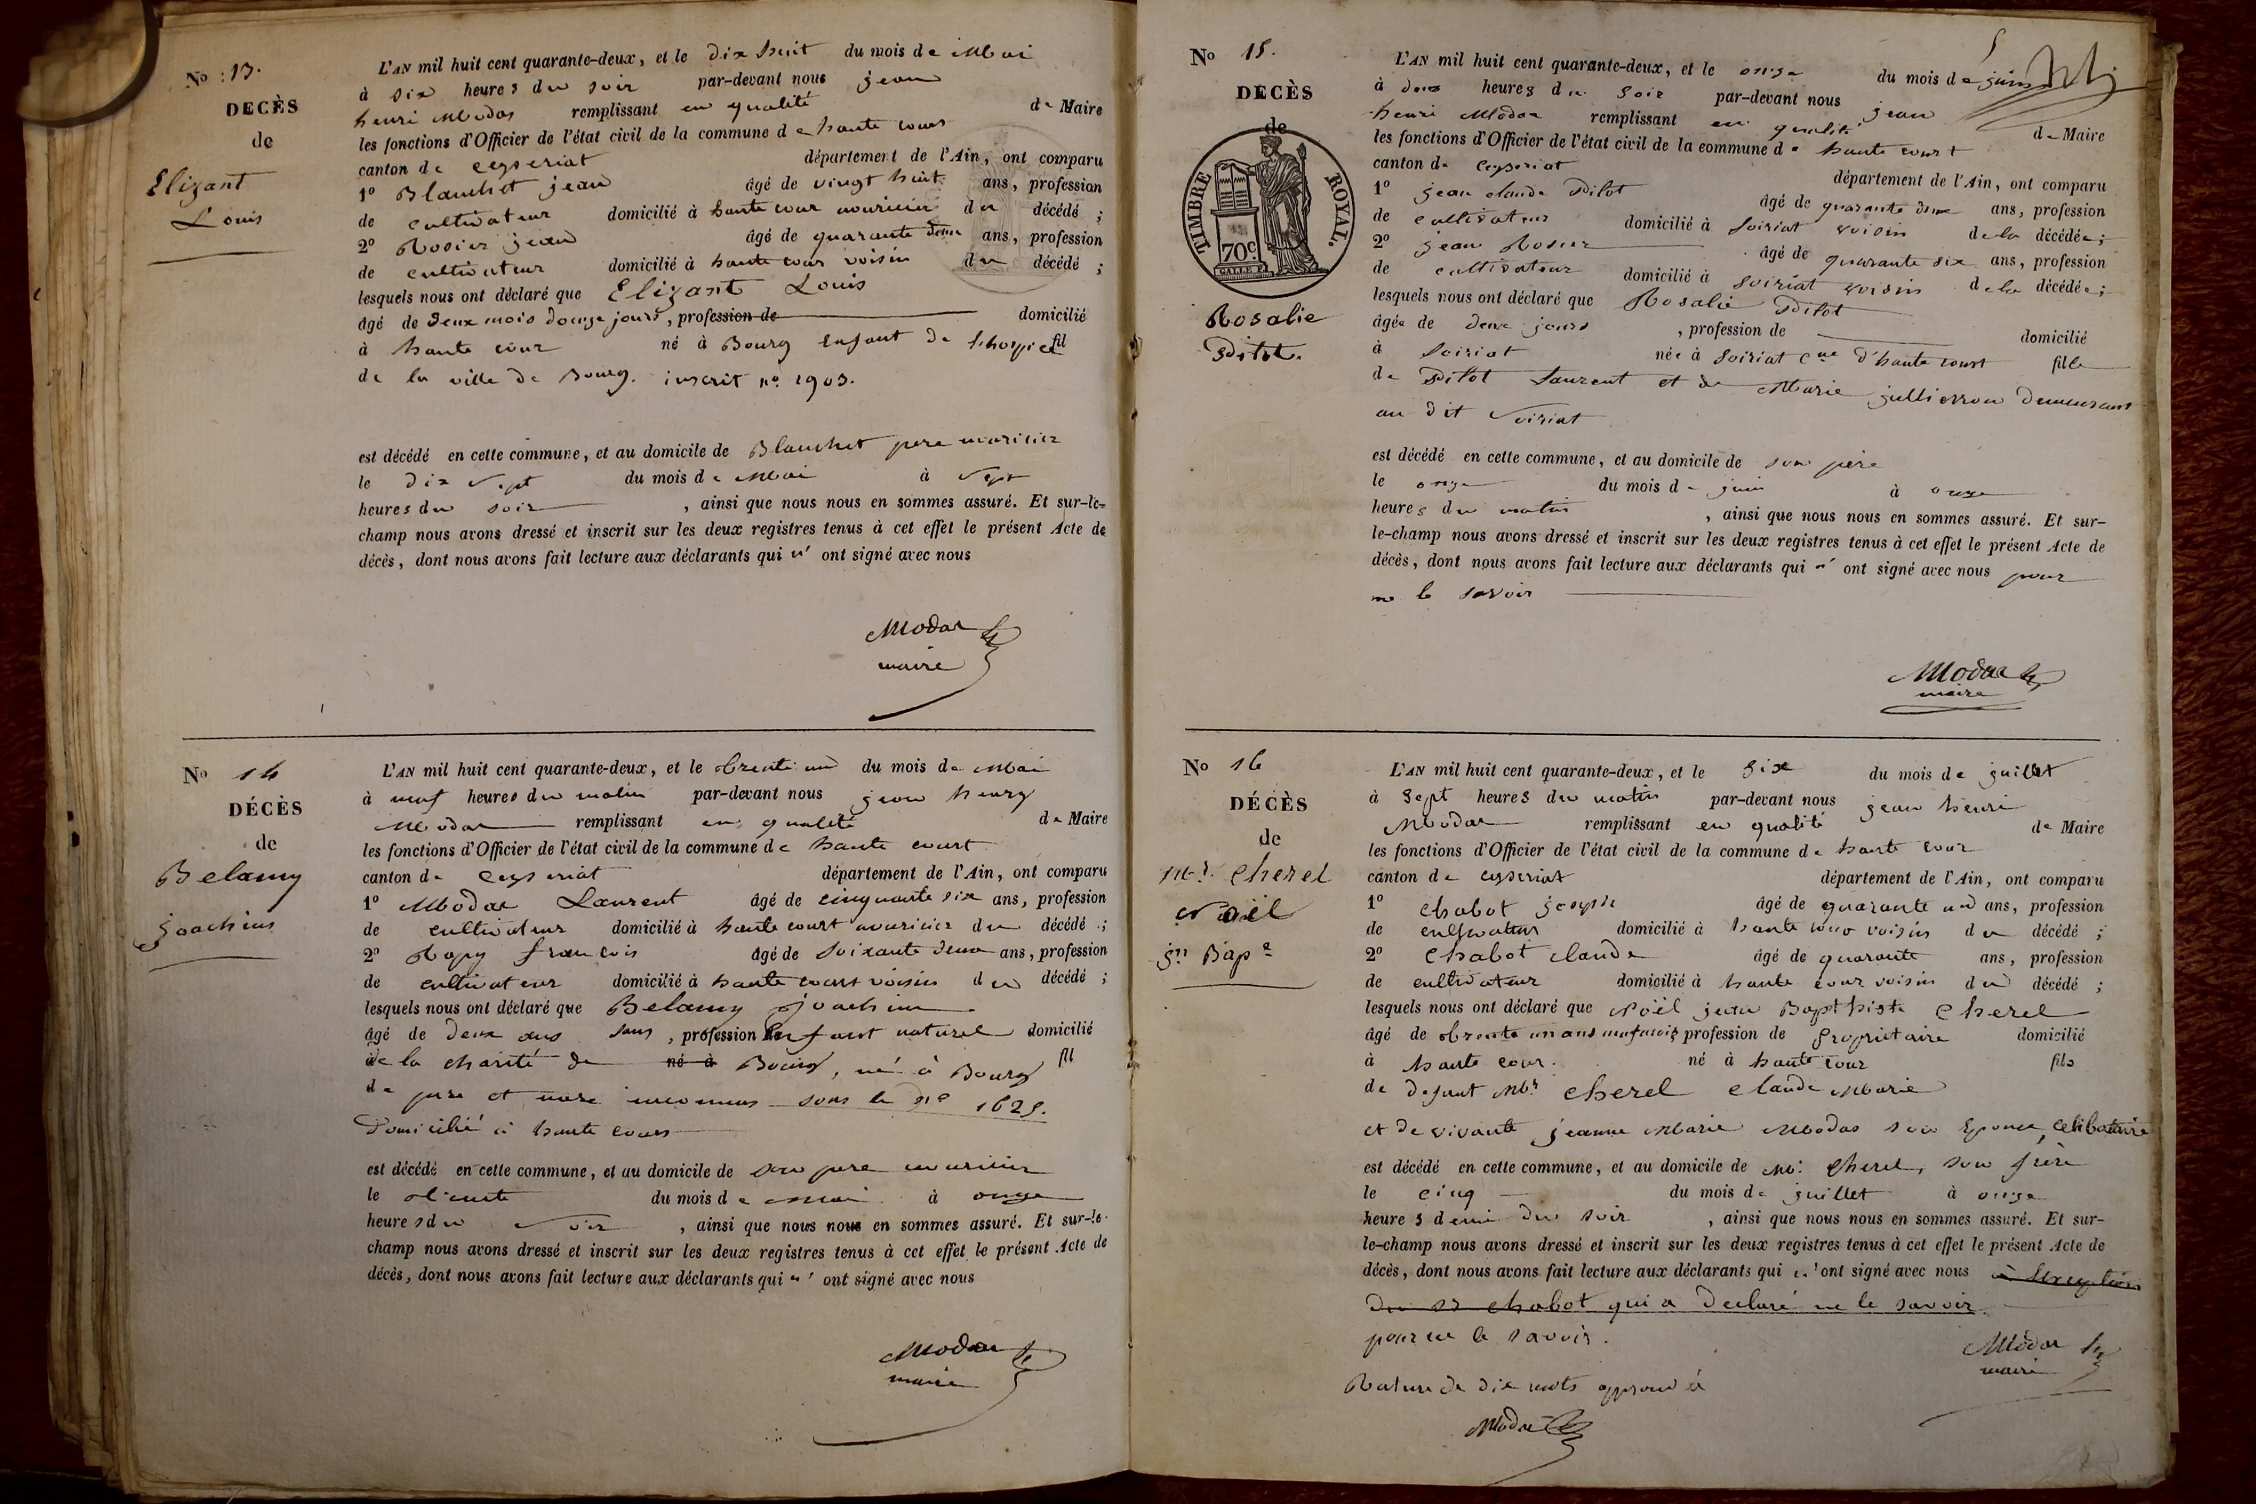 No 13.
DECÈS
de
Elizant
Louis
L'AN mil huit cent quarante-deux, et le dix huit du mois de Mai
à six heures du soir par-devant nous jean
henri Modas remplissant en qualité de Maire
les fonctions d'Officier de l'état civil de la commune de haute cour
canton de ceyseriat département de l'Ain, ont comparu
1º Blanchet jean âgé de vingt huit ans, profession
de cultivateur domicilié à haute cour nouricier du décédé ;
2º Rosier jean âgé de quarante deux ans, profession
de cultivateur domicilié à haute cour voisin du décédé ;
lesquels nous ont déclaré que Elizant Louis
âgé de deux mois douze jours, profession de domicilié
à haute cour né à Bourg enfant de l'hospice fil
de la ville de Bourg. inscrit nº 1903.
est décédé en cette commune, et au domicile de Blanchet pere nouricier
le dix sept du mois de Mai à sept
heures du soir , ainsi que nous nous en sommes assuré. Et sur-le-
champ nous avons dressé et inscrit sur les deux registres tenus à cet effet le présent Acte de
décès, dont nous avons fait lecture aux déclarants qui n' ont signé avec nous
Modas
maire
No 14
DÉCÈS
de
Belamy
joachim
L'AN mil huit cent quarante-deux, et le trente un du mois de Mai
à neuf heures du matin par-devant nous jean henry
Modas remplissant en qualité de Maire
les fonctions d'Officier de l'état civil de la commune de haute court
canton de ceyseriat département de l'Ain, ont comparu
1º Modas Laurent âgé de cinquante six ans, profession
de cultivateur domicilié à haute court nouricier du décédé ;
2º Rapy francois âgé de soixante deux ans, profession
de cultivateur domicilié à haute court voisin du décédé ;
lesquels nous ont déclaré que Belamy joachim
âgé de deux ans sans , profession enfant naturel domicilié
de la charité de né à Bourg, né à Bourg fil
de pere et mere inconnus sous le nº 1625.
Domicilié à haute cour
est décédé en cette commune, et au domicile de son pere nouricier
le trente du mois de mai à onze
heures du soir , ainsi que nous nous en sommes assuré. Et sur-le-
champ nous avons dressé et inscrit sur les deux registres tenus à cet effet le présent Acte de
décès, dont nous avons fait lecture aux déclarants qui n' ont signé avec nous
Modas
maire
No 15.
DECÈS
de
TIMBRE ROYAL.
70c
Rosalie
Pitot.
L'AN mil huit cent quarante-deux, et le onze du mois de juin
à deux heures du soir par-devant nous jean
henri Modas remplissant en qualité de Maire
les fonctions d'Officier de l'état civil de la commune de haute court
canton de ceyseriat département de l'Ain, ont comparu
1º jean claude Pitot âgé de quarante deux ans, profession
de cultivateur domicilié à soiriat voisin de la décédée ;
2º jean Rosier âgé de quarante six ans, profession
de cultivateur domicilié à soiriat voisin de la décédée ;
lesquels nous ont déclaré que Rosalie Pitot
âgée de deux jours , profession de domicilié
à soiriat née à soiriat cne d'haute court fille
de Pitot Laurent et de Marie jullierron demeurant
au dit soiriat
est décédé en cette commune, et au domicile de son père
le onze du mois de juin à onze
heures du matin , ainsi que nous nous en sommes assuré. Et sur-
le-champ nous avons dressé et inscrit sur les deux registres tenus à cet effet le présent Acte de
décès, dont nous avons fait lecture aux déclarants qui n' ont signé avec nous pour
ne le savoir
Modas
maire
No 16
DÉCÈS
de
Mr. Cherel
Noël
jn Bapte
L'AN mil huit cent quarante-deux, et le six du mois de juillet
à sept heures du matin par-devant nous jean henri
Modas remplissant en qualité de Maire
les fonctions d'Officier de l'état civil de la commune de haute cour
canton de ceyseriat département de l'Ain, ont comparu
1º Chabot joseph âgé de quarante un ans, profession
de cultivateur domicilié à haute cour voisin du décédé ;
2º Chabot claude âgé de quarante ans, profession
de cultivateur domicilié à haute cour voisin du décédé ;
lesquels nous ont déclaré que Noël jean Bapthiste Cherel
âgé de trente un ans neuf mois profession de propriétaire domicilié
à haute cour. né à haute cour fils
de defunt Mr Cherel Claude Marie
et de vivante jeanne Marie Modas son Epouse, celibataire
est décédé en cette commune, et au domicile de Mr. Cherel, son frère
le cinq du mois de juillet à onze
heures demi du soir , ainsi que nous nous en sommes assuré. Et sur-
le-champ nous avons dressé et inscrit sur les deux registres tenus à cet effet le présent Acte de
décès, dont nous avons fait lecture aux déclarants qui n'ont signé avec nous à l'exeption
du sr chabot qui a declaré ne le savoir
pour ne le savoir.
Modas
maire
Rature de dix mots approuvé
Modas